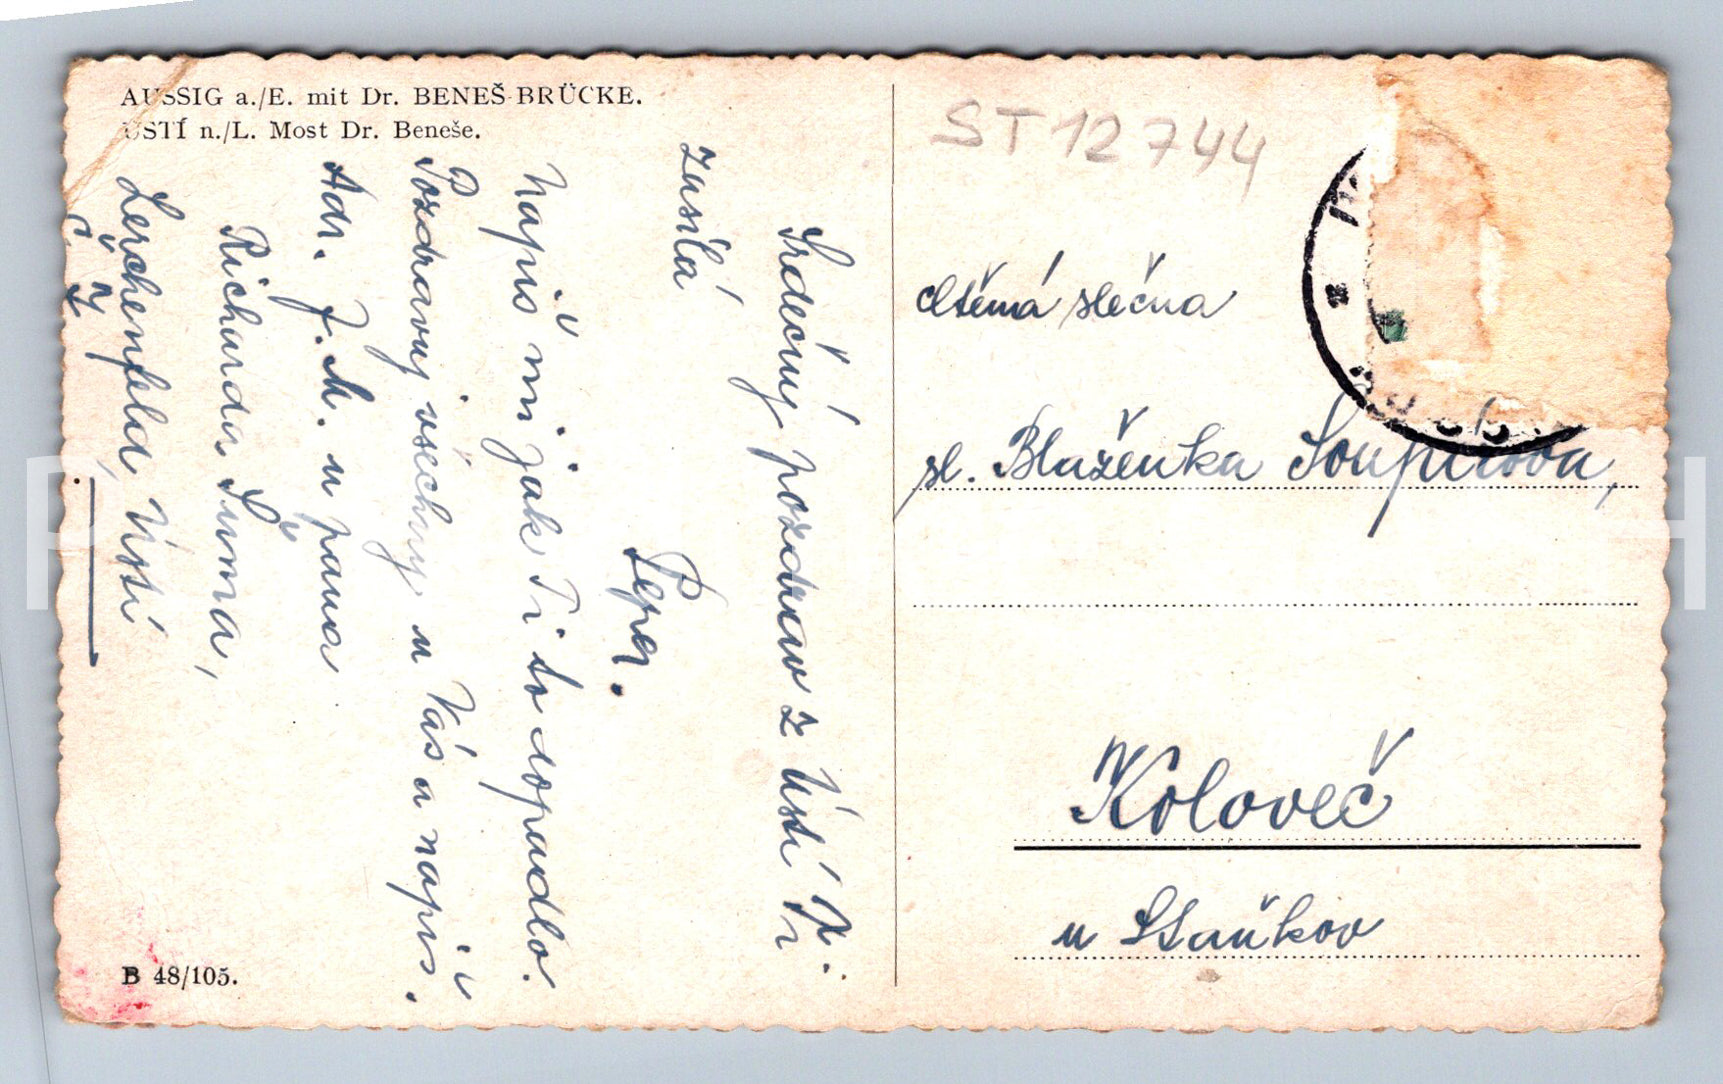 AUSSIG a./E. mit Dr. BENEŠ-BRÜCKE.
ÚSTÍ n./L. Most Dr. Beneše.
Srdečný pozdrav z Ústí
zasílá
Pepa.
Napiš mi jak Ti to dopadlo.
Pozdravuj všechny u Vás a napiš.
Adr. J. M. u pana
Richarda
Lerchenfeld, Ústí
B 48/105.
ST 12744
Ctěná slečna
sl. Blaženka
Koloveč
u Staňkov